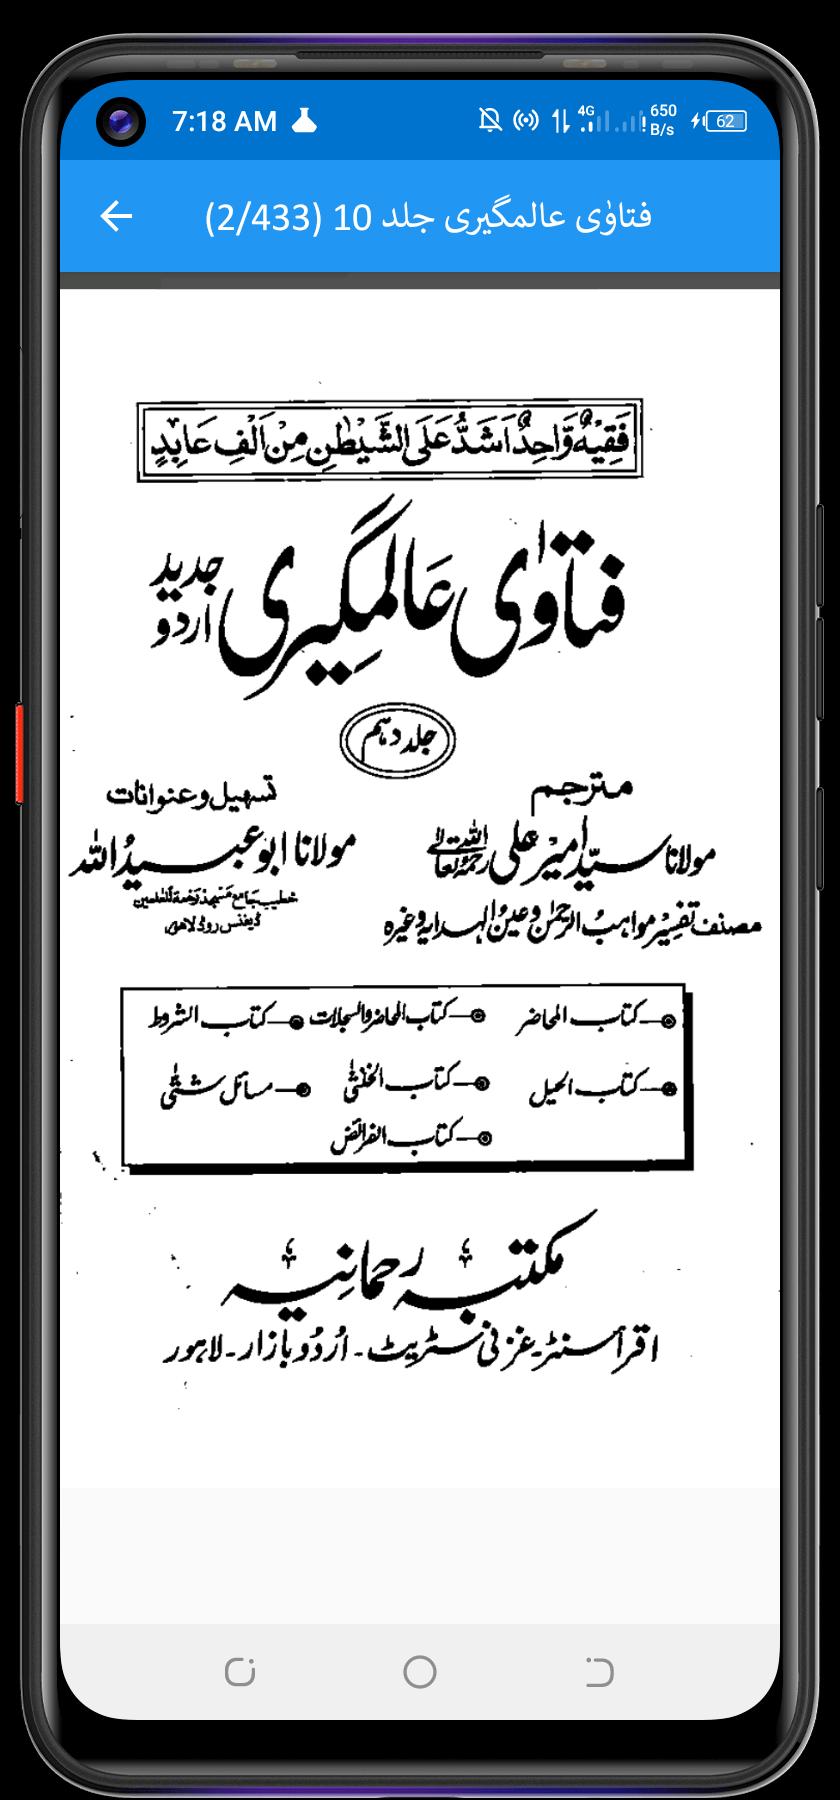 7:18 AM 4G 650 B/s 62
فتاوٰی عالمگیری جلد 10 (2/433)
فَقِيْهٌ وَّاحِدٌ اَشَدُّ عَلَى الشَّيْطٰنِ مِنْ اَلْفِ عَابِدٍ
فتاوٰی عالمگیری جدید اردو
جلد دہم
مترجم
مولانا سیّد امیر علی رحمۃ اللہ تعالیٰ
مصنف تفسیر مواہب الرحمٰن و عین الہدایہ وغیرہ
تسہیل و عنوانات
مولانا ابو عبید اللہ
خطیب جامع مسجد رحمۃ للعلمین
ڈیفنس روڈ لاہور
کتاب المحاضر کتاب المحاضر والسجلات کتاب الشروط
کتاب الحیل کتاب الخنثٰی مسائل شتّٰی
کتاب الفرائض
مکتبہ رحمانیہ
اقرأ سنٹر۔ غزنی سٹریٹ۔ اُردو بازار۔ لاہور